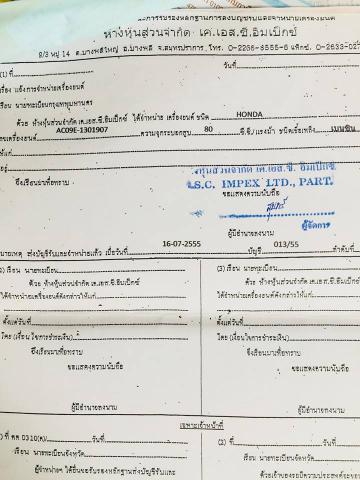 ห้างหุ้นส่วนจำกัด เค.เอส.ซี.อิมเป็กซ์
9/3 หมู่ 14 ต.บางพลีใหญ่ อ.บางพลี จ.สมุทรปราการ, โทร.
(1) ที่ วันที่
เรื่อง แจ้งการจำหน่ายเครื่องยนต์
เรียน นายทะเบียนกรุงเทพมหานคร
ด้วย ห้างหุ้นส่วนจำกัด เค.เอส.ซี.อิมเป็กซ์ ได้จำหน่าย เครื่องยนต์ ชนิด HONDA
เลขเครื่องยนต์ AC09E-1301907 ความจุกระบอกสูบ 80 ซี.ซี./แรงม้า ชนิดเชื้อเพลิง เบนซิน
ให้แก่
อยู่
จึงเรียนมาเพื่อทราบ
ห้างหุ้นส่วนจำกัด เค.เอส.ซี. อิมเป็กซ์
K.S.C. IMPEX LTD., PART.
ขอแสดงความนับถือ
ผู้จัดการ
ผู้มีอำนาจลงนาม
หมายเหตุ ส่งบัญชีรับและจำหน่ายแล้ว เมื่อวันที่ 16-07-2555 บัญชี 013/55 ลำดับที่
(2) เรียน นายทะเบียน
ด้วย ห้างหุ้นส่วนจำกัด เค.เอส.ซี.อิมเป็กซ์
ได้จำหน่ายเครื่องยนต์ดังกล่าวให้แก่
ตั้งแต่วันที่
โดย (เงื่อนไขการชำระเงิน)
จึงเรียนมาเพื่อทราบ
ขอแสดงความนับถือ
ผู้มีอำนาจลงนาม
(3) เรียน นายทะเบียน
ด้วย ห้างหุ้นส่วนจำกัด เค.เอส.ซี.
ได้จำหน่ายเครื่องยนต์ดังกล่าวให้แก่
ตั้งแต่วันที่
โดย (เงื่อนไขการชำระเงิน)
จึงเรียนมาเพื่อทราบ
ขอแสดงความนับถือ
ผู้มีอำนาจลงนาม
เฉพาะเจ้าหน้าที่
(1) ที่ คค 0310(ค)/ วันที่
เรียน นายทะเบียนจังหวัด
ผู้จำหน่ายฯ ได้ยื่นขอรับรองหลักฐานส่งบัญชีรับและ
(2) ที่ วันที่
เรียน นายทะเบียนจังหวัด